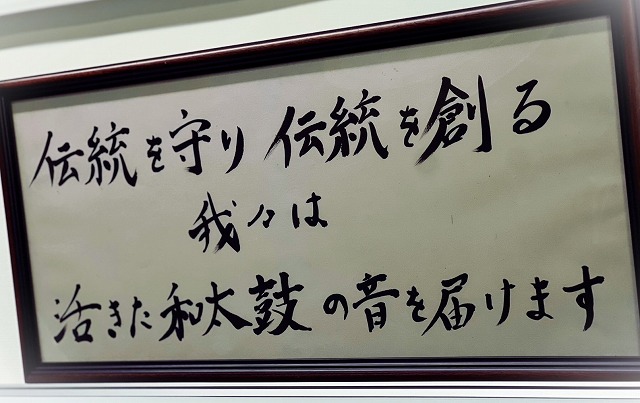 伝統を守り 伝統を創る
我々は
活きた和太鼓の音を届けます